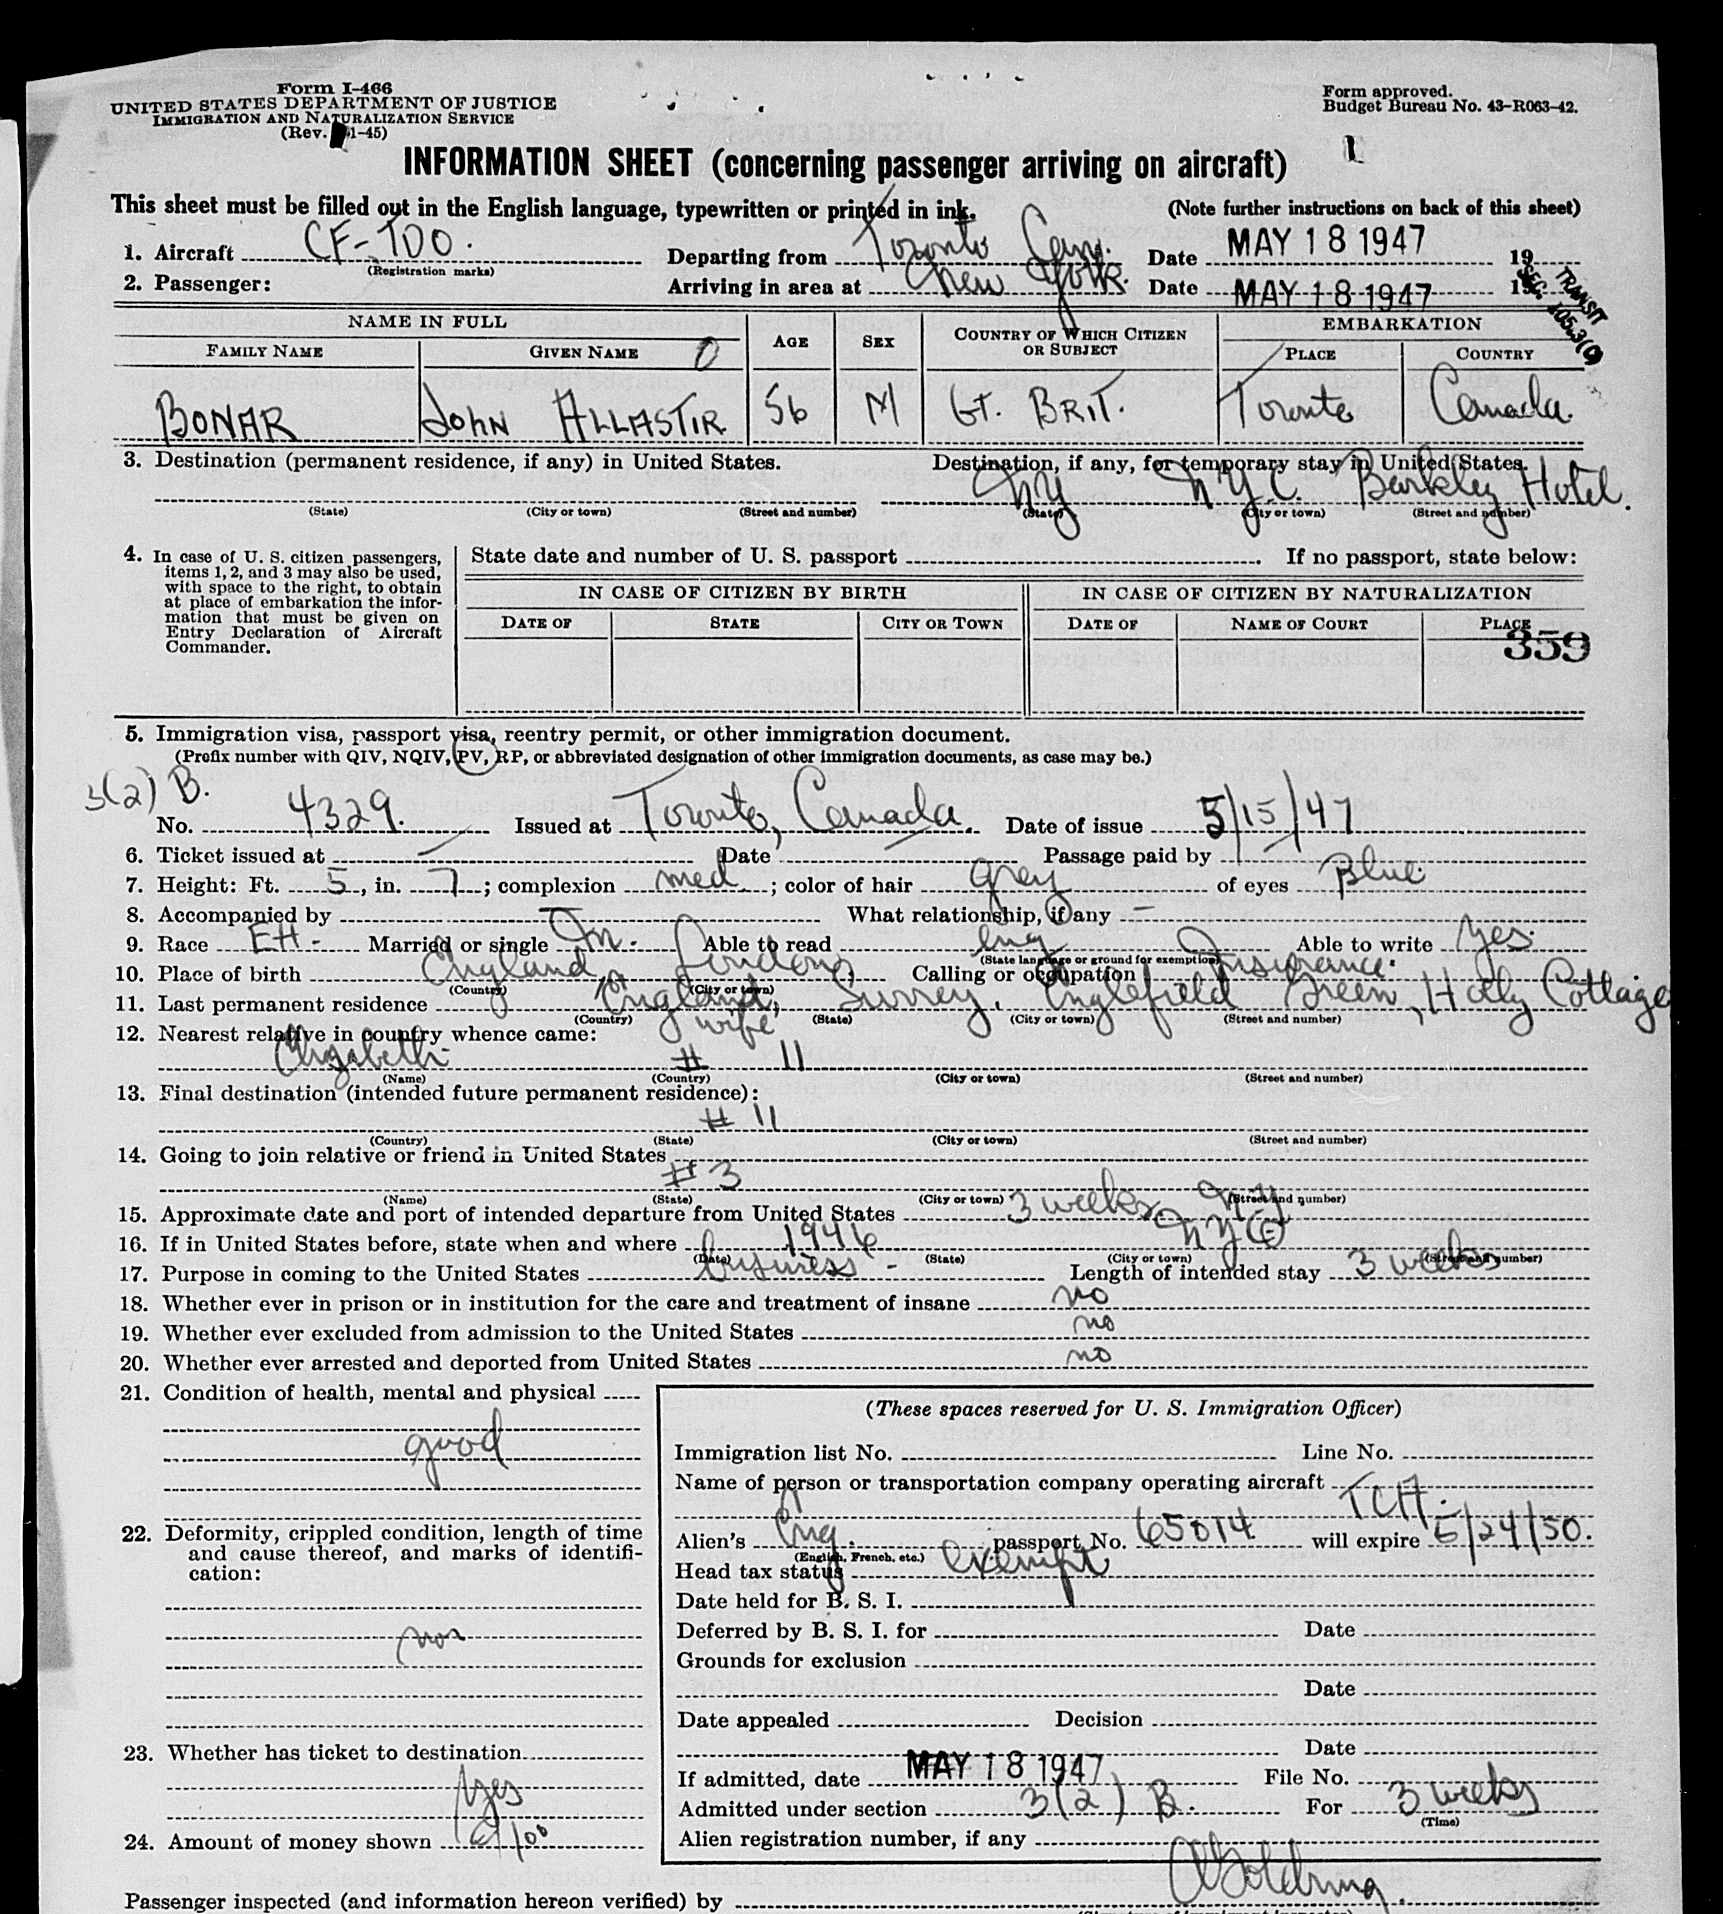 Form I-466
UNITED STATES DEPARTMENT OF JUSTICE
IMMIGRATION AND NATURALIZATION SERVICE
(Rev. 1-45)
Form approved.
Budget Bureau No. 43-R063-42.
INFORMATION SHEET (concerning passenger arriving on aircraft)
This sheet must be filled out in the English language, typewritten or printed in ink. (Note further instructions on back of this sheet)
1. Aircraft CF-TDO. Departing from Toronto Can. Date MAY 18 1947 19
(Registration marks)
2. Passenger: Arriving in area at New York. Date MAY 18 1947
TRANSIT
SEC. 105.3(c)
NAME IN FULL AGE SEX COUNTRY OF WHICH CITIZEN OR SUBJECT EMBARKATION
FAMILY NAME GIVEN NAME PLACE COUNTRY
BONAR JOHN ALLASTIR 56 M GT. BRIT. Toronto Canada.
3. Destination (permanent residence, if any) in United States. Destination, if any, for temporary stay in United States.
NY N.Y.C. Barkley Hotel.
(State) (City or town) (Street and number) (State) (City or town) (Street and number)
4. In case of U. S. citizen passengers, items 1, 2, and 3 may also be used, with space to the right, to obtain at place of embarkation the information that must be given on Entry Declaration of Aircraft Commander.
State date and number of U. S. passport . If no passport, state below:
IN CASE OF CITIZEN BY BIRTH IN CASE OF CITIZEN BY NATURALIZATION
DATE OF STATE CITY OR TOWN DATE OF NAME OF COURT PLACE
359
5. Immigration visa, passport visa, reentry permit, or other immigration document.
(Prefix number with QIV, NQIV, PV, RP, or abbreviated designation of other immigration documents, as case may be.)
3(2) B.
No. 4329. Issued at Toronto, Canada. Date of issue 5/15/47
6. Ticket issued at — Date — Passage paid by —
7. Height: Ft. 5, in. 7; complexion med. ; color of hair grey of eyes Blue.
8. Accompanied by — What relationship, if any —
9. Race Married or single m. Able to read Eng Able to write yes.
(State language or ground for exemption)
10. Place of birth England London, Calling or occupation Insurance.
(Country) (City or town)
11. Last permanent residence England, Surrey, Englefield Green, Holly Cottage
(Country) (State) (City or town) (Street and number)
12. Nearest relative in country whence came: wife
Elizabeth # 11
(Name) (Country) (City or town) (Street and number)
13. Final destination (intended future permanent residence):
# 11
(Country) (State) (City or town) (Street and number)
14. Going to join relative or friend in United States
# 3
(Name) (State) (City or town) (Street and number)
15. Approximate date and port of intended departure from United States 3 weeks. NY
16. If in United States before, state when and where 1946 NYC
(Date) (State) (City or town) (Street and number)
17. Purpose in coming to the United States business - Length of intended stay 3 weeks
18. Whether ever in prison or in institution for the care and treatment of insane no
19. Whether ever excluded from admission to the United States no
20. Whether ever arrested and deported from United States no
21. Condition of health, mental and physical
good
22. Deformity, crippled condition, length of time and cause thereof, and marks of identification:
23. Whether has ticket to destination
yes
24. Amount of money shown
(These spaces reserved for U. S. Immigration Officer)
Immigration list No. Line No.
Name of person or transportation company operating aircraft TCA.
Alien's Eng. passport No. 65014 will expire 5/24/50.
(English, French, etc.)
Head tax status exempt
Date held for B. S. I.
Deferred by B. S. I. for Date
Grounds for exclusion
Date
Date appealed Decision
Date
If admitted, date MAY 18 1947 File No.
Admitted under section 3(2) B. For 3 weeks
(Time)
Alien registration number, if any
Passenger inspected (and information hereon verified) by